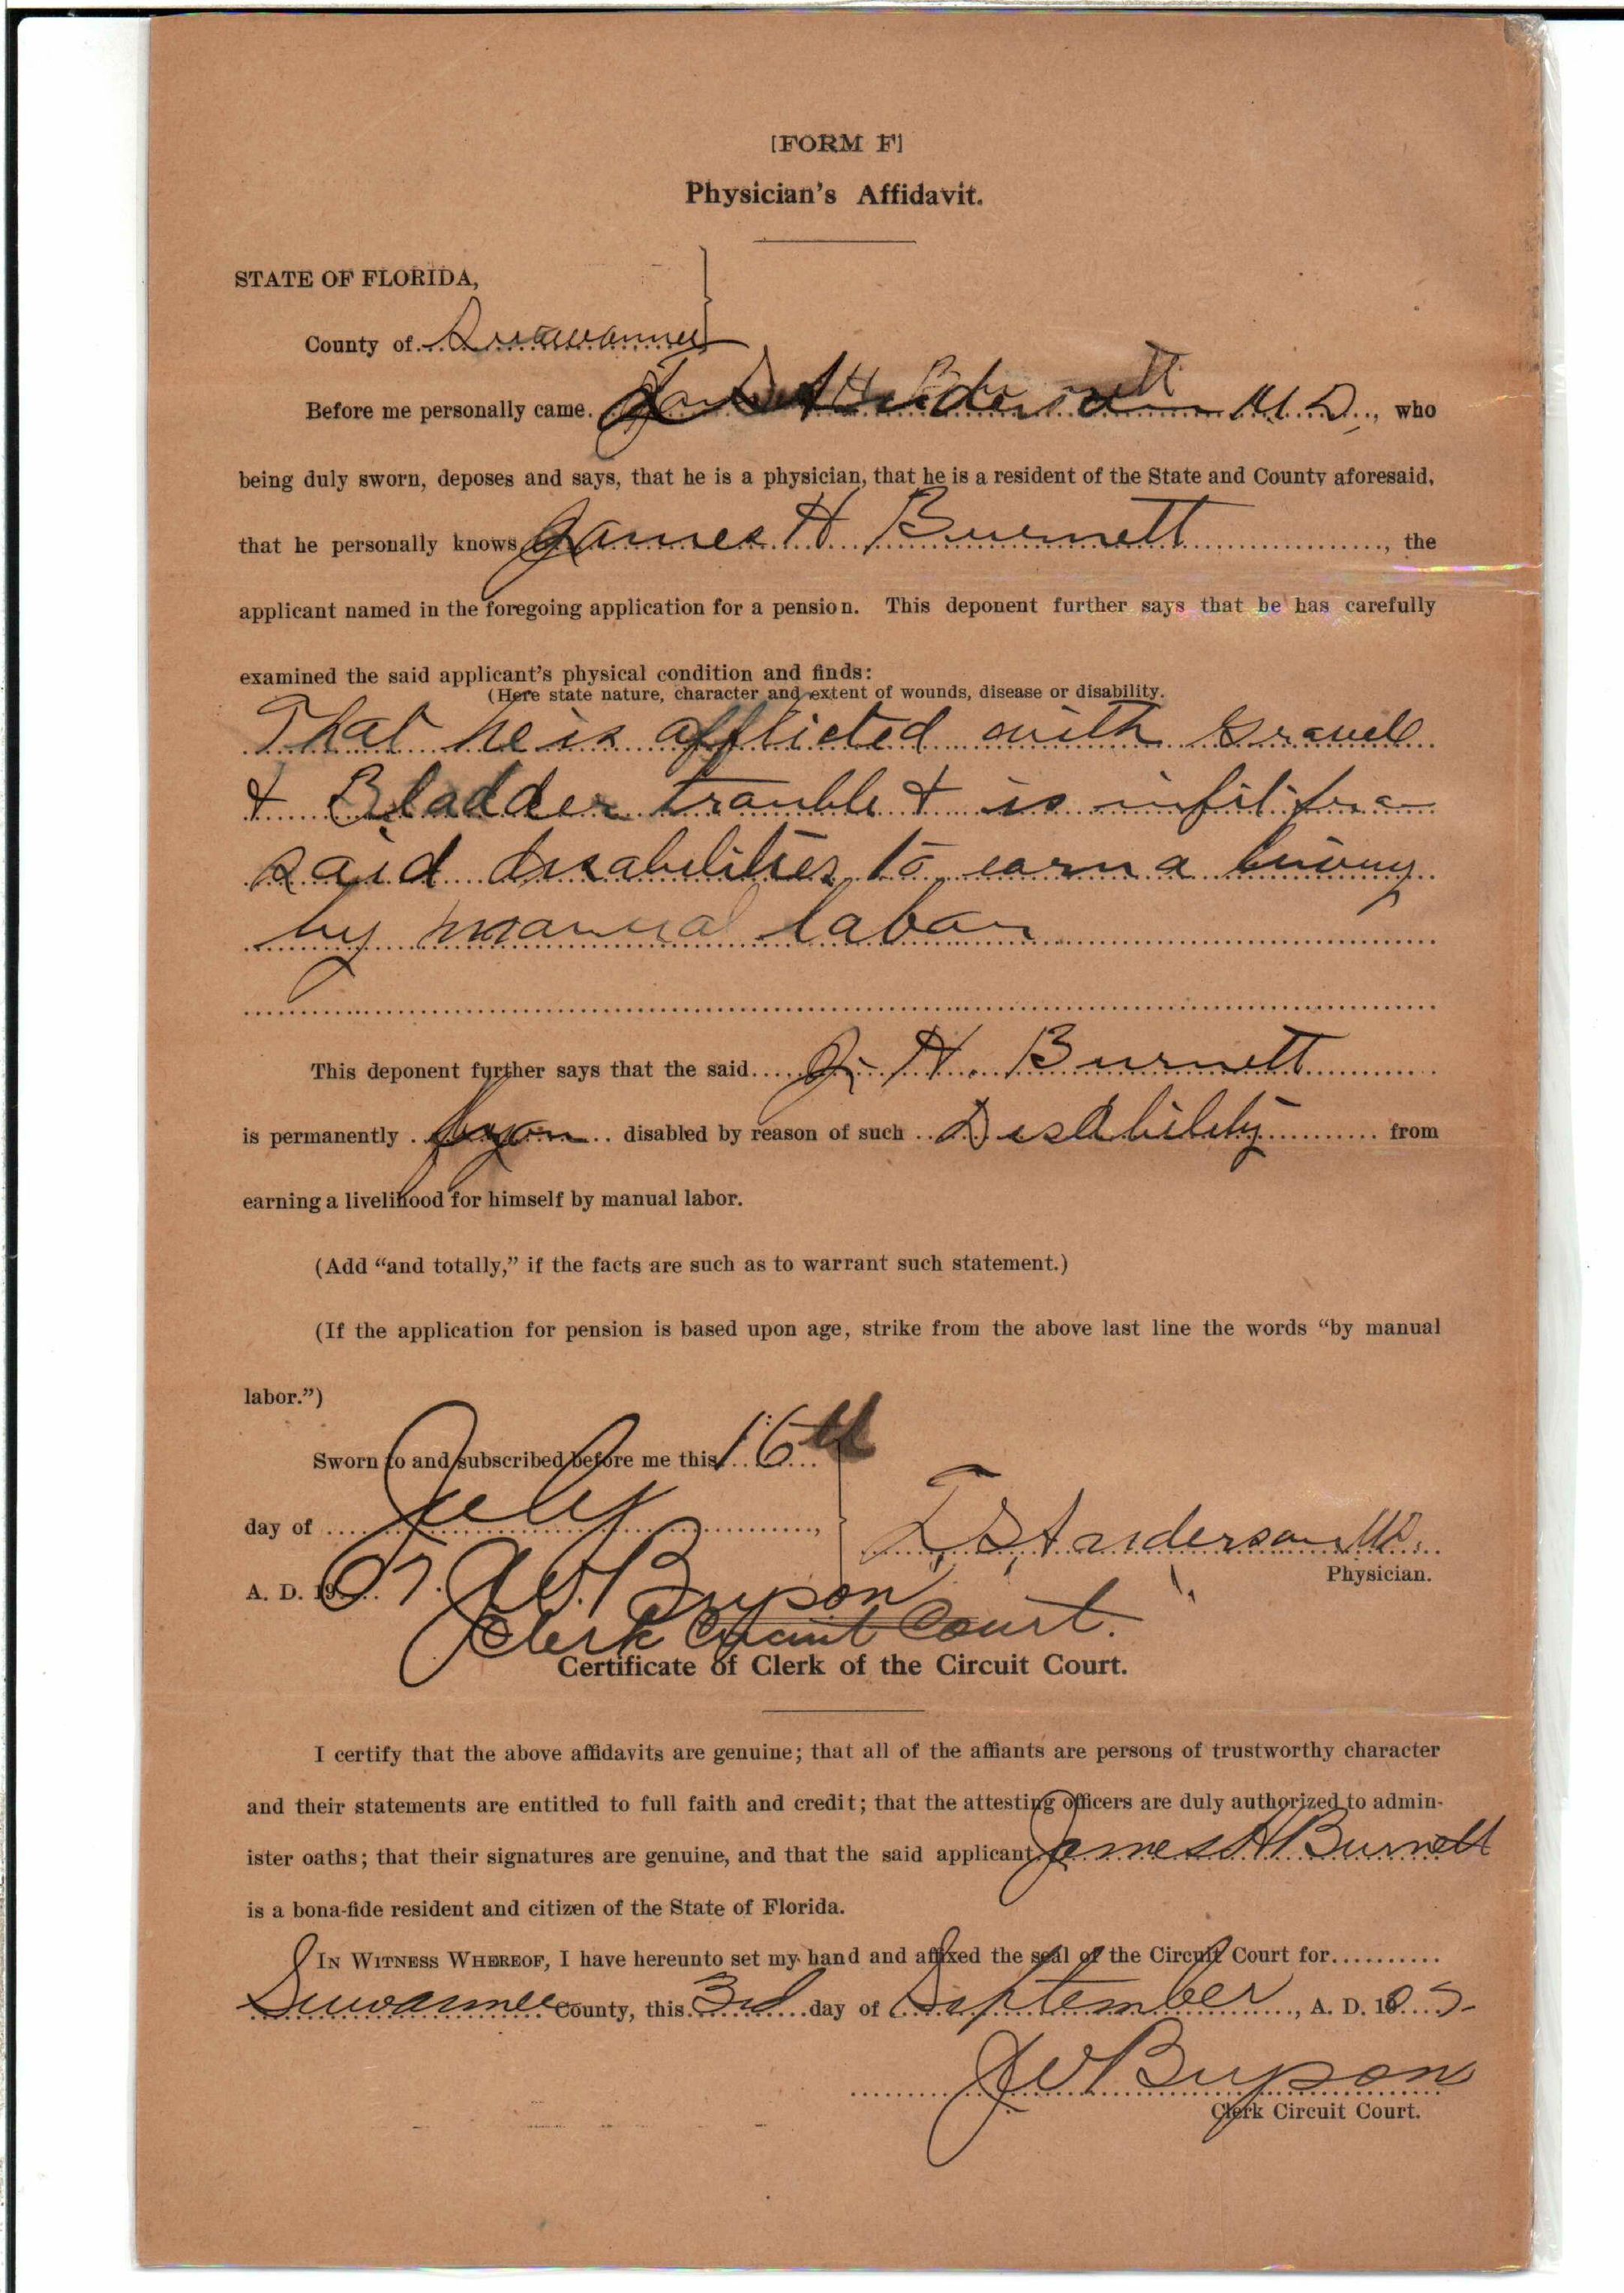 [FORM F]
Physician's Affidavit.
STATE OF FLORIDA,
County of Suwannee
Before me personally came M.D., who
being duly sworn, deposes and says, that he is a physician, that he is a resident of the State and County aforesaid,
that he personally knows James H Burnett, the
applicant named in the foregoing application for a pension. This deponent further says that he has carefully
examined the said applicant's physical condition and finds:
(Here state nature, character and extent of wounds, disease or disability.
That he is afflicted with Gravell
& Bladder trouble & is
said disabilities to earn a living
by manual labor
This deponent further says that the said J. H. Burnett
is permanently disabled by reason of such Disability from
earning a livelihood for himself by manual labor.
(Add "and totally," if the facts are such as to warrant such statement.)
(If the application for pension is based upon age, strike from the above last line the words "by manual
labor.")
Sworn to and subscribed before me this 16th
day of July,
T. S. Anderson MD.
Physician.
A. D. 1907. J W Bryson
Clerk Circuit Court.
Certificate of Clerk of the Circuit Court.
I certify that the above affidavits are genuine; that all of the affiants are persons of trustworthy character
and their statements are entitled to full faith and credit; that the attesting officers are duly authorized to admin-
ister oaths; that their signatures are genuine, and that the said applicant James H Burnett
is a bona-fide resident and citizen of the State of Florida.
IN WITNESS WHEREOF, I have hereunto set my hand and affixed the seal of the Circuit Court for
Suwannee County, this 3rd day of September, A. D. 190
J W Bryson
Clerk Circuit Court.